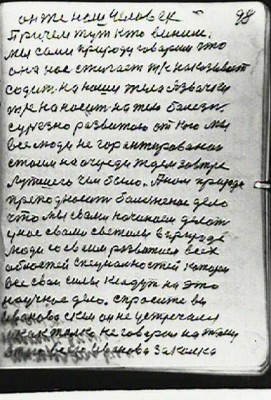 он же нам человек 98
Причем тут кто виний.
Мы сами природу говорим это
она нас стигает т/к наказывает
содит. на наши тела язвочки
т/к наносит на тело болезн.
от кого мы
все люди не гарантирована
стоим на очереди ждем завтра
лутшего чем было. А нам природа
преподносит болезненое дело
что мы с вами начинаем делать
у нас с вами в природе
люди со всим развитием всех
областей специальностей которые
все свои силы кладут на это
научное дело. спросите вы
Иванова с кем он не устречался
и как только не говорил на тему
Иванова закалка